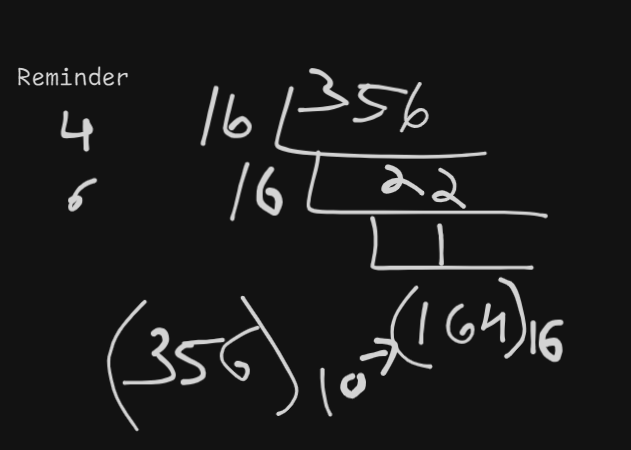 Reminder
16 356
4
16 22
6
1
(356)10 → (164)16